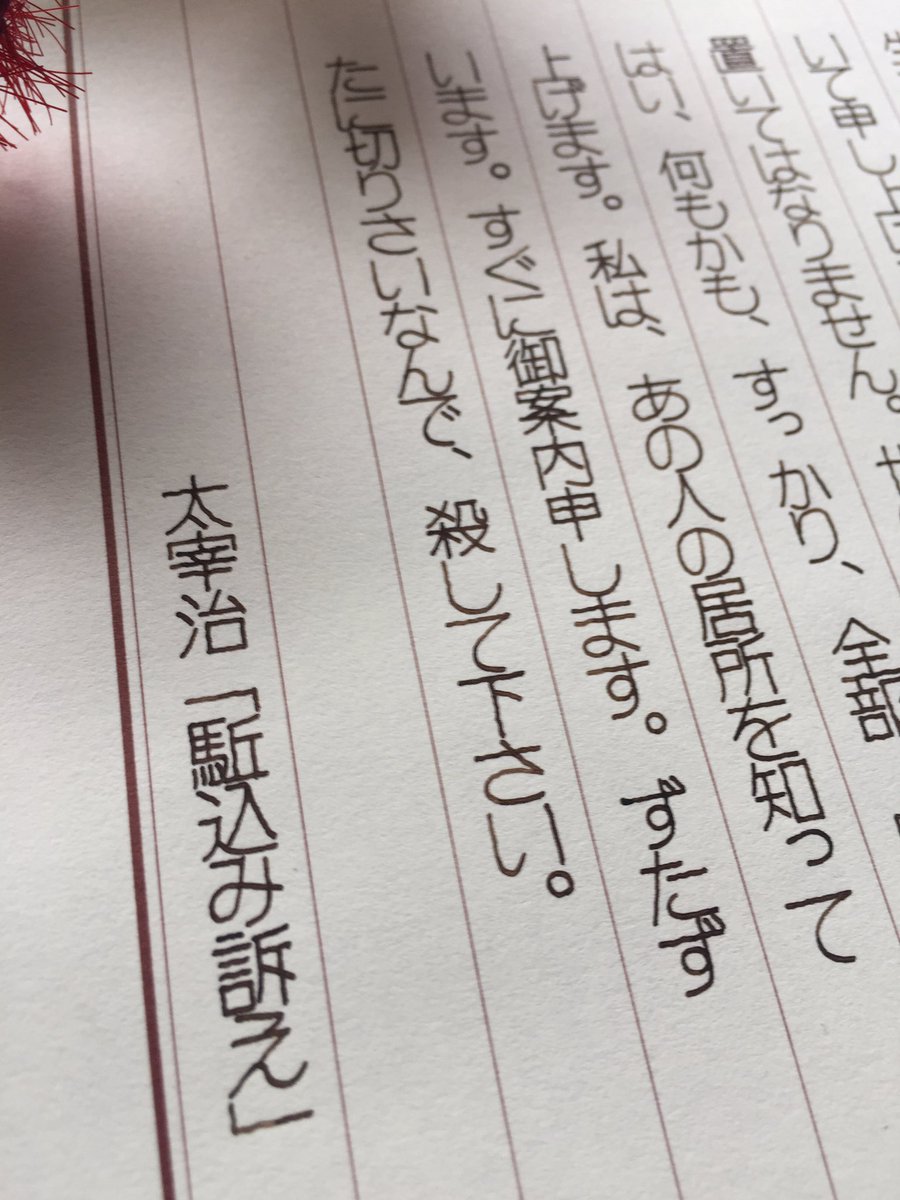 いて申し上
置いてはなりません。
はい、何もかも、すっかり、全部
上げます。私は、あの人の居所を知って
います。すぐに御案内申します。ずたず
たに切りさいなんで、殺して下さい。
太宰治「駈込み訴え」